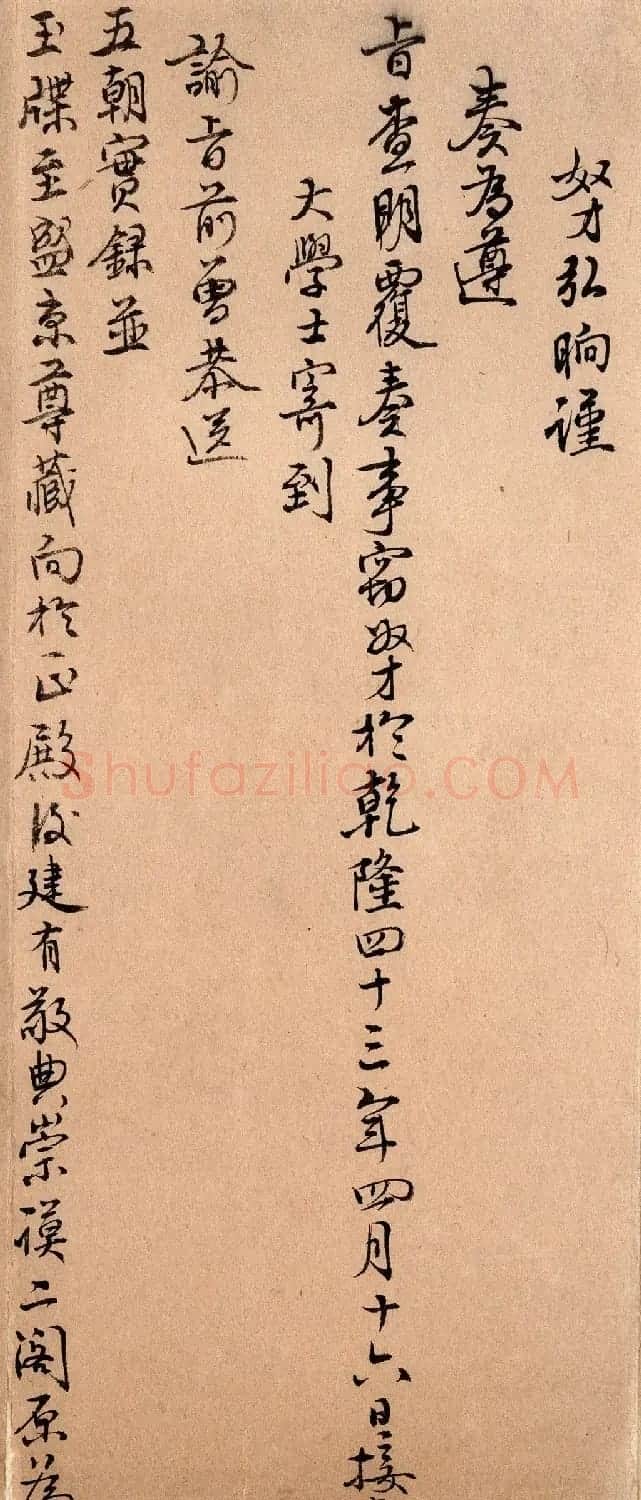 奴才弘晌謹
奏為遵
旨查明覆奏事竊奴才於乾隆四十三年四月十六日接
大學士寄到
諭旨前曾恭送
五朝實錄並
玉牒至盛京尊藏向於正殿後建有敬典崇謨二閣原為
Shufaziliao.COM